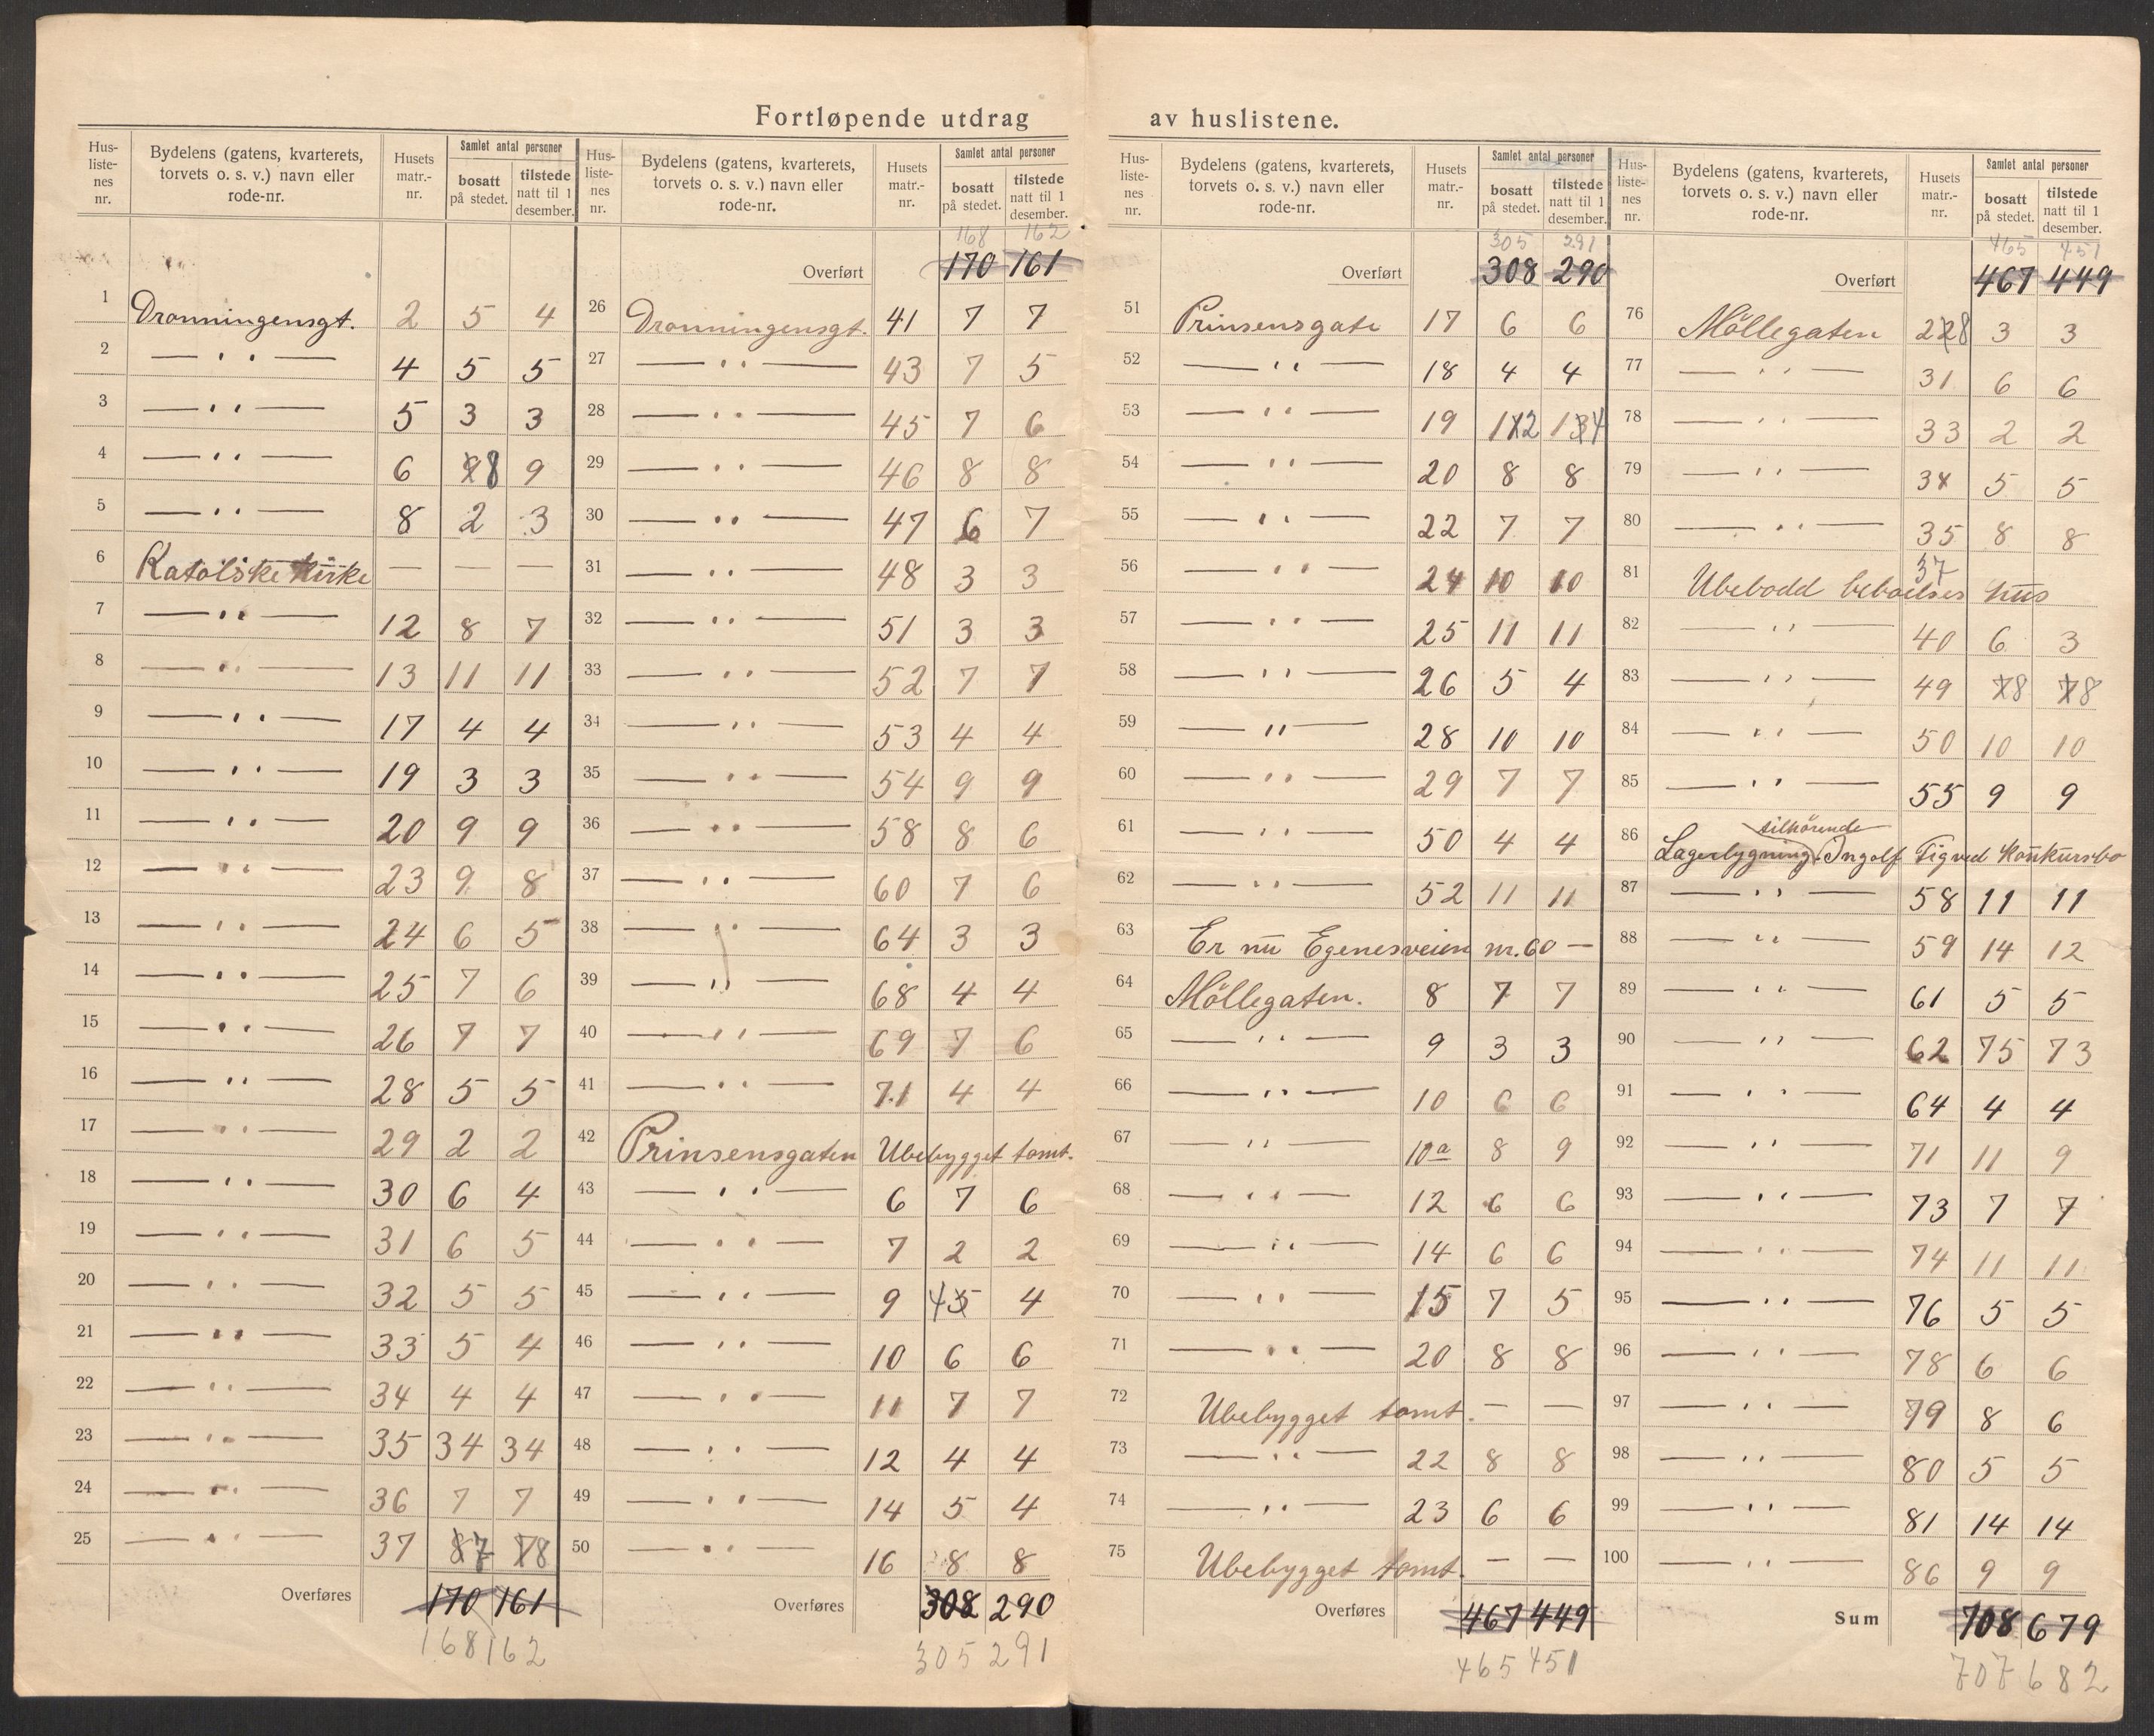 Fortløpende utdrag av huslistene.
Hus-listenes nr. | Bydelens (gatens, kvarterets, torvets o. s. v.) navn eller rode-nr. | Husets matr.-nr. | Samlet antal personer bosatt på stedet. | tilstede natt til 1 desember.
1 Dronningensgt. 2 5 4
2 — " — 4 5 5
3 — " — 5 3 3
4 — " — 6 8 9
5 — " — 8 2 3
6 Katolske Kirke — — —
7 — " — 12 8 7
8 — " — 13 11 11
9 — " — 17 4 4
10 — " — 19 3 3
11 — " — 20 9 9
12 — " — 23 9 8
13 — " — 24 6 5
14 — " — 25 7 6
15 — " — 26 7 7
16 — " — 28 5 5
17 — " — 29 2 2
18 — " — 30 6 4
19 — " — 31 6 5
20 — " — 32 5 5
21 — " — 33 5 4
22 — " — 34 4 4
23 — " — 35 34 34
24 — " — 36 7 7
25 — " — 37 87 78
Overføres 170 161
168 162
Hus-listenes nr. | Bydelens (gatens, kvarterets, torvets o. s. v.) navn eller rode-nr. | Husets matr.-nr. | Samlet antal personer bosatt på stedet. | tilstede natt til 1 desember.
168 162
Overført 170 161
26 Dronningensgt. 41 7 7
27 — " — 43 7 5
28 — " — 45 7 6
29 — " — 46 8 8
30 — " — 47 6 7
31 — " — 48 3 3
32 — " — 51 3 3
33 — " — 52 7 7
34 — " — 53 4 4
35 — " — 54 9 9
36 — " — 58 8 6
37 — " — 60 7 6
38 — " — 64 3 3
39 — " — 68 4 4
40 — " — 69 7 6
41 — " — 71 4 4
42 Prinsensgaten Ubebygget tomt.
43 — " — 6 7 6
44 — " — 7 2 2
45 — " — 9 45 4
46 — " — 10 6 6
47 — " — 11 7 7
48 — " — 12 4 4
49 — " — 14 5 4
50 — " — 16 8 8
Overføres 308 290
305 291
Hus-listenes nr. | Bydelens (gatens, kvarterets, torvets o. s. v.) navn eller rode-nr. | Husets matr.-nr. | Samlet antal personer bosatt på stedet. | tilstede natt til 1 desember.
305 291
Overført 308 290
51 Prinsensgate 17 6 6
52 — " — 18 4 4
53 — " — 19 112 134
54 — " — 20 8 8
55 — " — 22 7 7
56 — " — 24 10 10
57 — " — 25 11 11
58 — " — 26 5 4
59 — " — 28 10 10
60 — " — 29 7 7
61 — " — 50 4 4
62 — " — 52 11 11
63 Er nu Egenesveien nr. 60 —
64 Möllegaten. 8 7 7
65 — " — 9 3 3
66 — " — 10 6 6
67 — " — 10a 8 9
68 — " — 12 6 6
69 — " — 14 6 6
70 — " — 15 7 5
71 — " — 20 8 8
72 Ubebygget tomt. — —
73 — " — 22 8 8
74 — " — 23 6 6
75 Ubebygget tomt. — —
Overføres 467 449
465 451
Hus-listenes nr. | Bydelens (gatens, kvarterets, torvets o. s. v.) navn eller rode-nr. | Husets matr.-nr. | Samlet antal personer bosatt på stedet. | tilstede natt til 1 desember.
465 451
Overført 467 449
76 Möllegaten 28 3 3
77 — " — 31 6 6
78 — " — 33 2 2
79 — " — 34 5 5
80 — " — 35 8 8
37
81 Ubebodd beboelses hus
82 — " — 40 6 3
83 — " — 49 78 78
84 — " — 50 10 10
85 — " — 55 9 9
tilhørende
86 Lagerbygning Ingolf Tigved Konkursbo
87 — " — 58 11 11
88 — " — 59 14 12
89 — " — 61 5 5
90 — " — 62 75 73
91 — " — 64 4 4
92 — " — 71 11 9
93 — " — 73 7 7
94 — " — 74 11 11
95 — " — 76 5 5
96 — " — 78 6 6
97 — " — 79 8 6
98 — " — 80 5 5
99 — " — 81 14 14
100 — " — 86 9 9
Sum 708 679
707 682